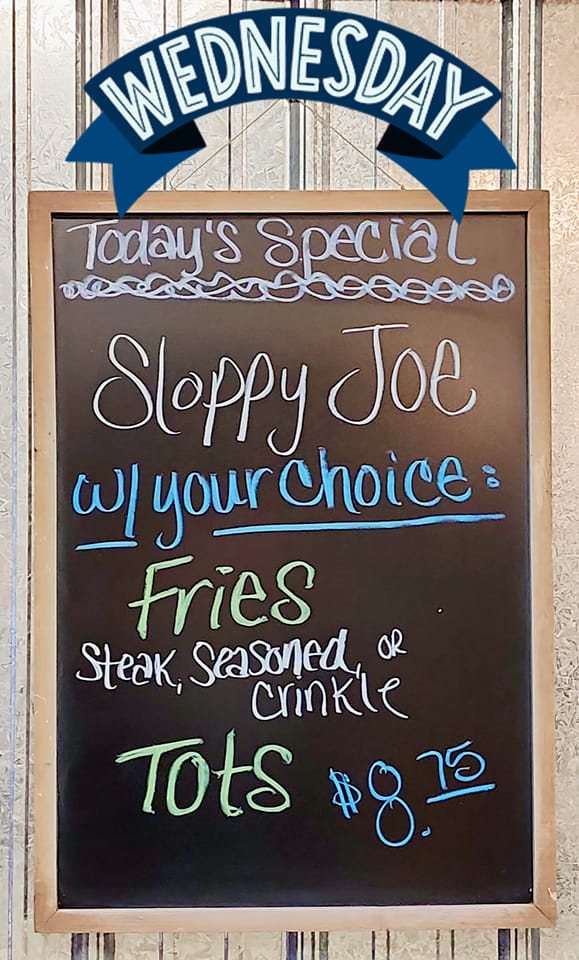 WEDNESDAY
Today's Special
Sloppy Joe
w/ your choice:
Fries
Steak, Seasoned, or
crinkle
Tots $8.75